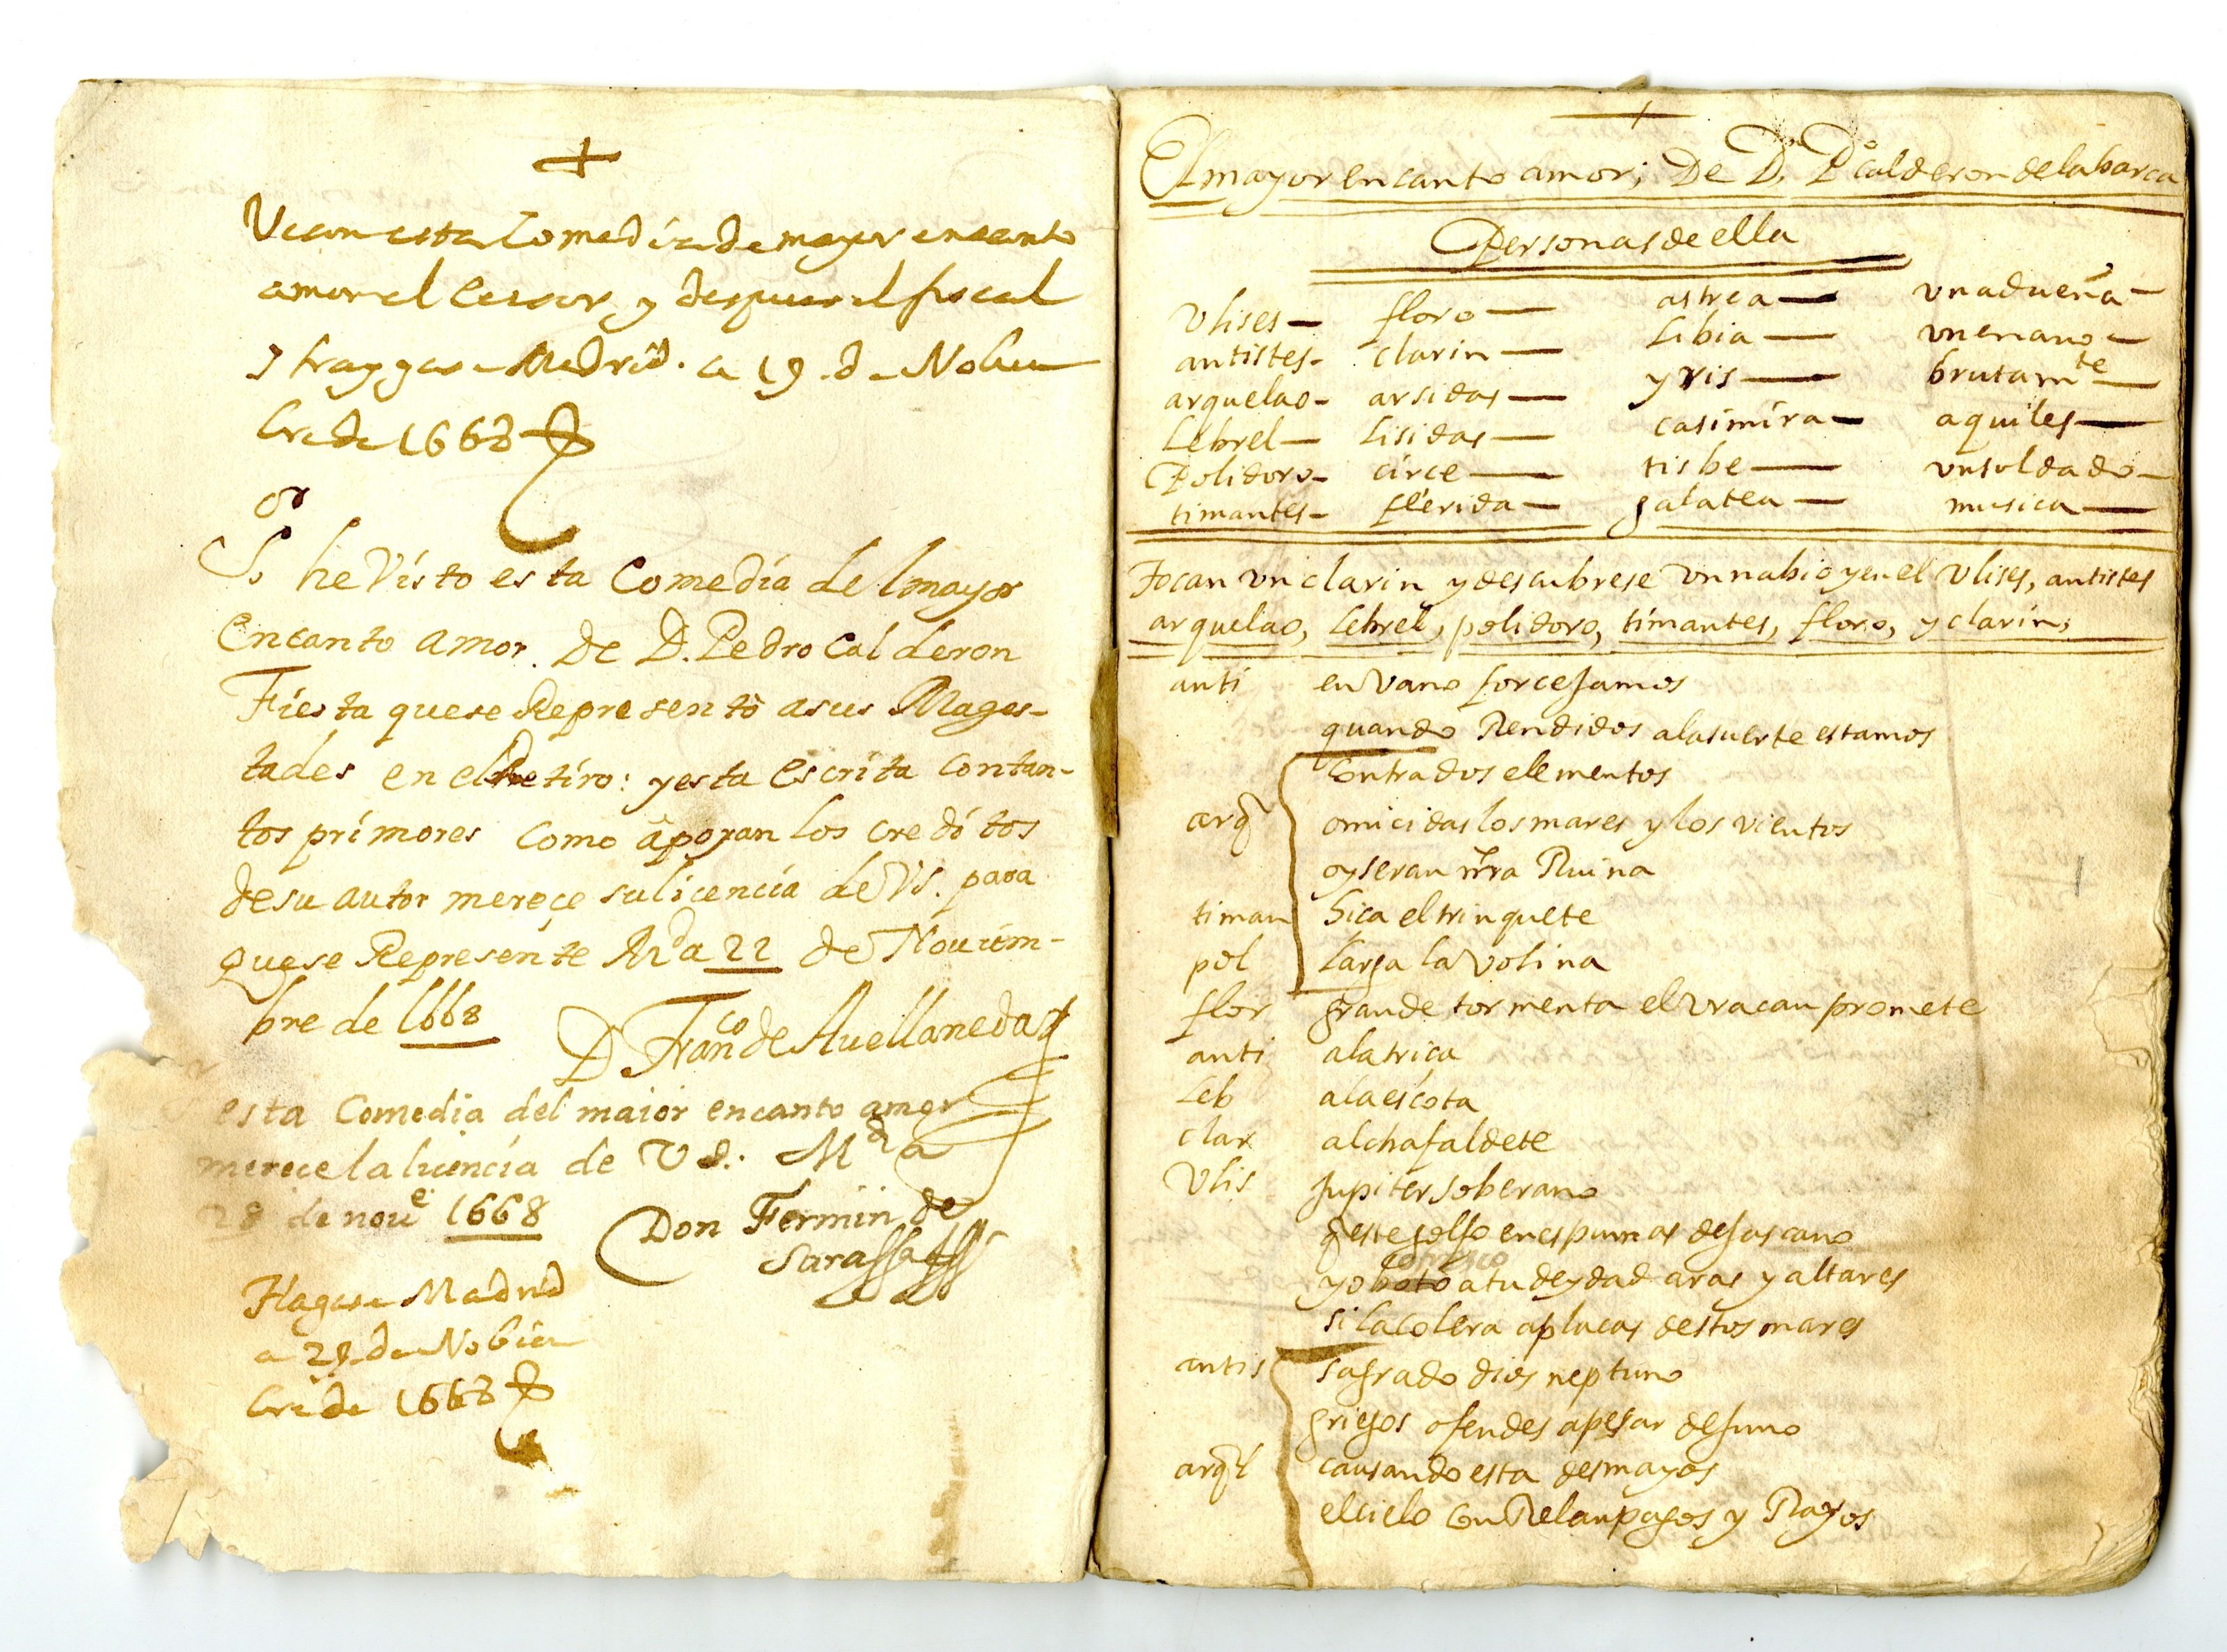 Vean esta Comedia de mayor encanto
amor el Censor y despues el fiscal
y traygase Madrid. a 19 de Nobiem
bre de 1668
Sor
he Visto esta Comedia del mayor
encanto amor. De D. Pedro Calderon
Fiesta que se Represento a sus Mages-
tades en el Retiro: y esta escrita con tan-
tos primores como apoyan los creditos
de su autor merece su licencia de VS. para
que se Represente Md a 22 de Noviem-
bre de 1668
D Franco de Avellaneda
esta Comedia del maior encanto amor
merece la licencia de VS.. Md a
28 de noue 1668
Don Fermin de
Sarassa
Hagase Madrid
a 29 de Nobiem
bre de 1668
El mayor encanto amor; De D. Po calderon de la barca
Personas de ella
Vlises floro astrea vna dueña
antistes clarin Libia vn enano
arquelao arsidas yris brutamte
Lebrel Lisidas casimira aquiles
Polidoro circe tisbe vn soldado
timantes flerida galatea musica
Tocan vn clarin y descubrese vn nabio y en el Vlises, antistes
arquelao, Lebrel, polidoro, timantes, floro, y clarin;
anti en vano forcejamos
quando Rendidos a la suerte estamos
contra dos elementos
arq omicidas los mares y los vientos
oy seran nra Ruina
timan hiça el trinquete
pol Larga la Volina
flor grande tormenta el vracan promete
anti a la triça
Leb a la escota
clar al chafaldete
Vlis Jupiter soberano
q este golfo en espumas dejas cano
ofrezco
yo boto a tu deydad aras y altares
si la colera aplacas destos mares
antis sagrado dios neptuno
griegos ofendes a pesar de Juno
arql causando esta desmayos
el cielo con Relanpagos y Rayos